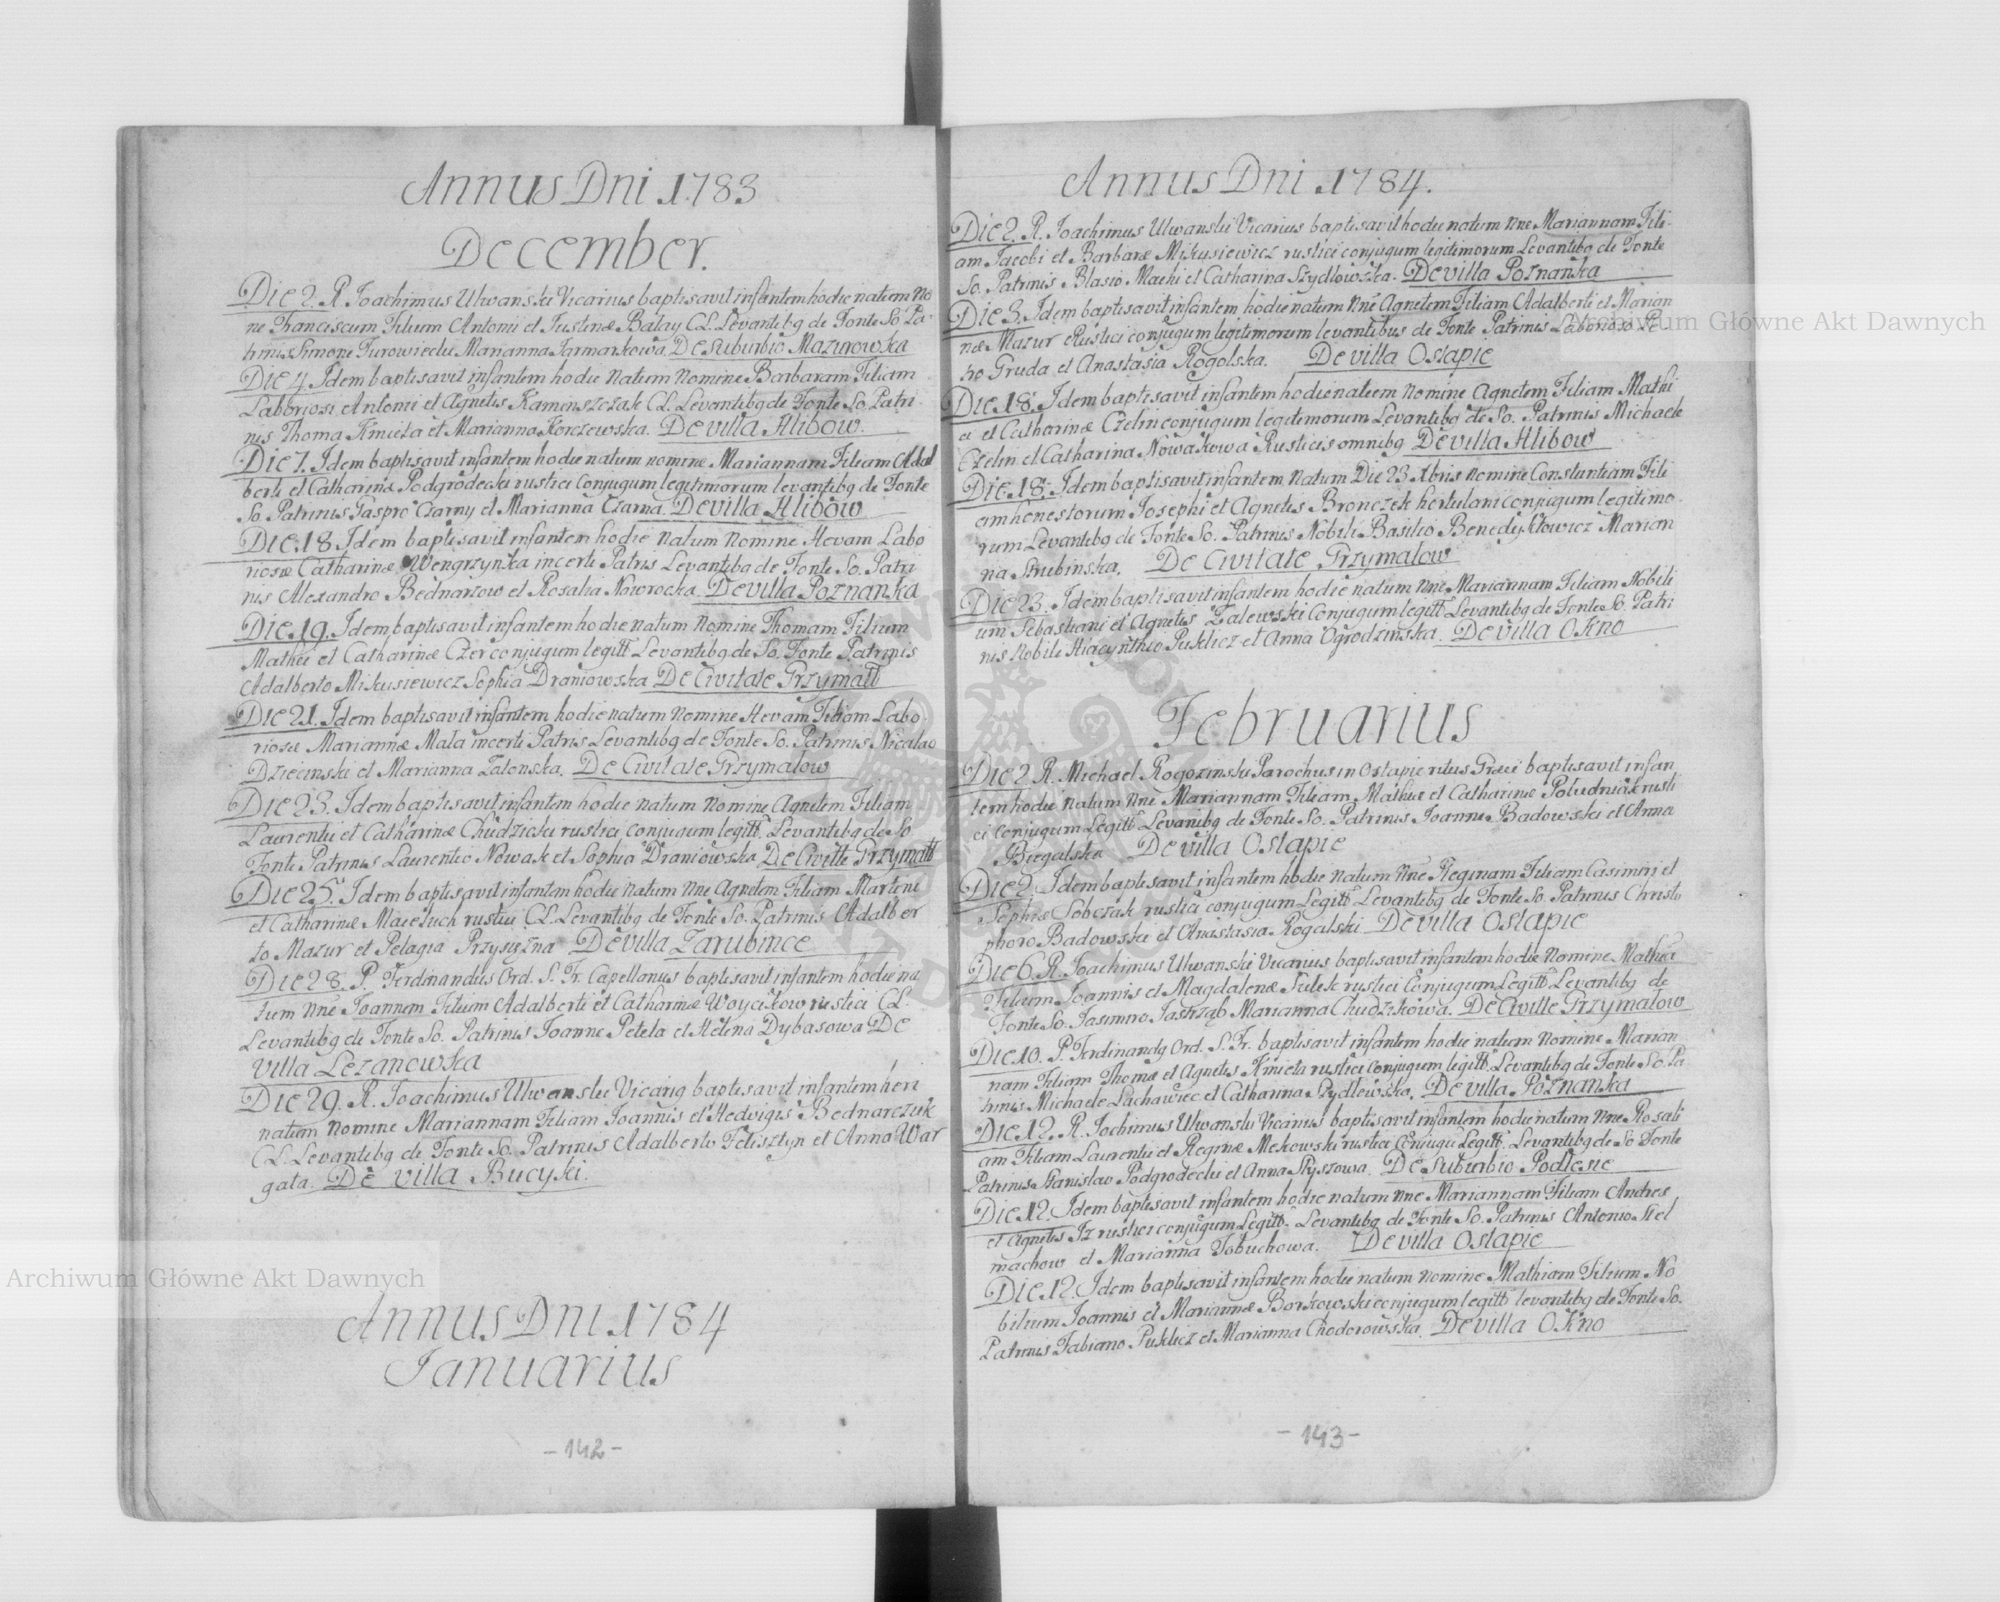 Annus Dni 1783
December.
Die 2. R. Joachimus Ulwanski Vicarius baptisavit infantem hodie natum No
ne Franciscum Filium Antonii et Justinæ Balay CL. Levantibq de Fonte So Pa
trinis Simone Turowiecki Marianna Jarmarkowa. De Suburbio Mazurowka
Die 4 Idem baptisavit infantem hodie natum nomine Barbaram Filiam
Laboriosi Antonii et Agnetis Kaminszczak CL. Levantibq de Fonte So Patri
nis Thoma Kmieta et Marianna Korczewska. De villa Hlibow.
Die 7. Idem baptisavit infantem hodie natum nomine Mariannam Filiam Adal
berti et Catharinæ Podgrodecki rustici Conjugum legitimorum levantibq de Fonte
So. Patrinis Gaspro Czarny et Marianna Czarna. De villa Hlibow
Die 18. Idem baptisavit infantem hodie natum nomine Hevam Labo
riosæ Catharinæ Wengrzynka incerti Patris Levantibq de Fonte So. Patri
nis Alexandro Bednarzow et Rosalia Nowrocka. De villa Poznanka
Die 19. Idem baptisavit infantem hodie natum nomine Thomam Filium
Mathei et Catharinæ Czer conjugum legitt Levantibq de So. Fonte Patrinis
Adalberto Mikusiewicz Sophia Draniowska De Civitate Grzymałł
Die 21. Idem baptisavit infantem hodie natum nomine Hevam Filiam Labo
riosæ Mariannæ Mała incerti Patris Levantibq de Fonte So. Patrinis Nicalao
Dziecinski et Marianna Zalonska. De Civitate Grzymałow
Die 23. Idem baptisavit infantem hodie natum nomine Agnetem Filiam
Laurentii et Catharinæ Chudzicki rustici conjugum legitt. Levantibq de So.
Fonte Patrinis Laurentio Nowak et Sophia Draniowska De Civitte Grzymałł
Die 25. Idem baptisavit infantem hodie natum Nne Agnetem Filiam Martini
et Catharinæ Maieluch rustici CL. Levantibq de Fonte So. Patrinis Adalber
to Mazur et Pelagia Przysyzna De villa Zarubince
Die 28. P. Ferdinandus Ord. S. Fr. Capellanus baptisavit infantem hodie na
tum Nne Joannem Filium Adalberti et Catharinæ Woycikow rustici CL.
Levantibq de Fonte So. Patrinis Joanne Petela et Helena Dybasowa De
Villa Lezanowka
Die 29. R. Joachimus Ulwanski Vicariq baptisavit infantem heri
natum nomine Mariannam Filiam Joannis et Hedvigis Bednarczuk
CL. Levantibq de Fonte So. Patrinis Adalberto Felisztyn et Anna War
gata. De villa Bucyki.
Annus Dni 1784
Januarius
- 142 -
Annus Dni 1784.
Die 2. R. Joachimus Ulwanski Vicarius baptisavit hodie natum Nne Mariannam Fili-
am Jacobi et Barbaræ Mikusiewicz rustici conjugum legitimorum Levantibq de Fonte
So. Patrinis Blasio Machi et Catharina Szydlowska. De villa Poznanka
Die 3. Idem baptisavit infantem hodie natum Nne Agnetem Filiam Adalberti et Marian
næ Mazur Rustici conjugum legitimorum levantibus de Fonte Patrinis Laborioso Pe
tro Gruda et Anastasia Rogolska. De villa Ostapie
Die 18. Idem baptisavit infantem hodie natum nomine Agnetem Filiam Mathi
ei et Catharinæ Czelin conjugum legitimorum Levantibq de So. Patrinis Michaele
Czelin et Catharina Nowakowa Rusticis omnibq De villa Hlibow
Die 18. Idem baptisavit infantem Natum Die 23 Xbris nomine Constantiam Fili
am honestorum Josephi et Agnetis Bronczek hortulani conjugum legitimo
rum Levantibq de Fonte So. Patrinis Nobili Basilio Benedyktowicz Marian
na Strubinska. De Civitate Grzymalow
Die 23. Idem baptisavit infantem hodie natum Nne Mariannam Filiam Nobili
um Sebastiani et Agnetis Zalewski Conjugum legitt Levantibq de Fonte So. Patri
nis Nobili Hiacynthio Puklicz et Anna Ogrodzinska. De villa Okno
Februarius
Die 2. R. Michael Rogozinski Parochus in Ostapie ritus Græci baptisavit infan
tem hodie natum Nne Mariannam Filiam Mathiæ et Catharinæ Poludniak rusti
ci Conjugum Legitt Levantibq de Fonte So. Patrinis Joanne Badowski et Anna
Biegalska De villa Ostapie
Die 2. Idem baptisavit infantem hodie natum Nne Reginam Filiam Casimiri et
Sophiæ Sobczak rustici conjugum Legitt Levantibq de Fonte So. Patrinis Christo
phoro Badowska et Anastasia Rogalski De villa Ostapie
Die 6. R. Joachimus Ulwanski Vicarius baptisavit infantem hodie Nomine Mathia
Filium Joannis et Magdalenæ Sulek rustici Conjugum Legitt Levantibq de
Fonte So. Casimiro Jastrząb Marianna Chudzikowa. De Civitte Grzymałow
Die 10. P. Ferdinandq Ord. S. Fr. baptisavit infantem hodie natum nomine Marian
nam Filiam Thomæ et Agnetis Kmieta rustici conjugum legitt. Levantibq de Fonte So. Pa
trinis Michaele Lachawiec et Catharina Szydlowska. De villa Poznanka
Die 12. R. Jochimus Ulwanski Vicarius baptisavit infantem hodie natum Nne Rosali
am Filiam Laurentii et Reginæ Mekowski rustici Conjugu Legitt. Levantibq de So Fonte
Patrinis Stanislao Podgrodecki et Anna Slyszowa. De Suburbio Podlesie
Die 12. Idem baptisavit infantem hodie natum Nne Mariannam Filiam Andres
et Agnetis Iz rustici conjugum Legitt. Levantibq de Fonte So. Patrinis Antonio Stel
machow et Marianna Tobuchowa. De villa Ostapie
Die 12. Idem baptisavit infantem hodie natum nomine Mathiam Filium No
bilium Joannis et Mariannæ Borkowski conjugum legitt levantibq de Fonte So.
Patrinis Fabiano Puklicz et Marianna Chodorowska. De villa Okno
- 143 -
Archiwum Główne Akt Dawnych
Archiwum Główne Akt Dawnych